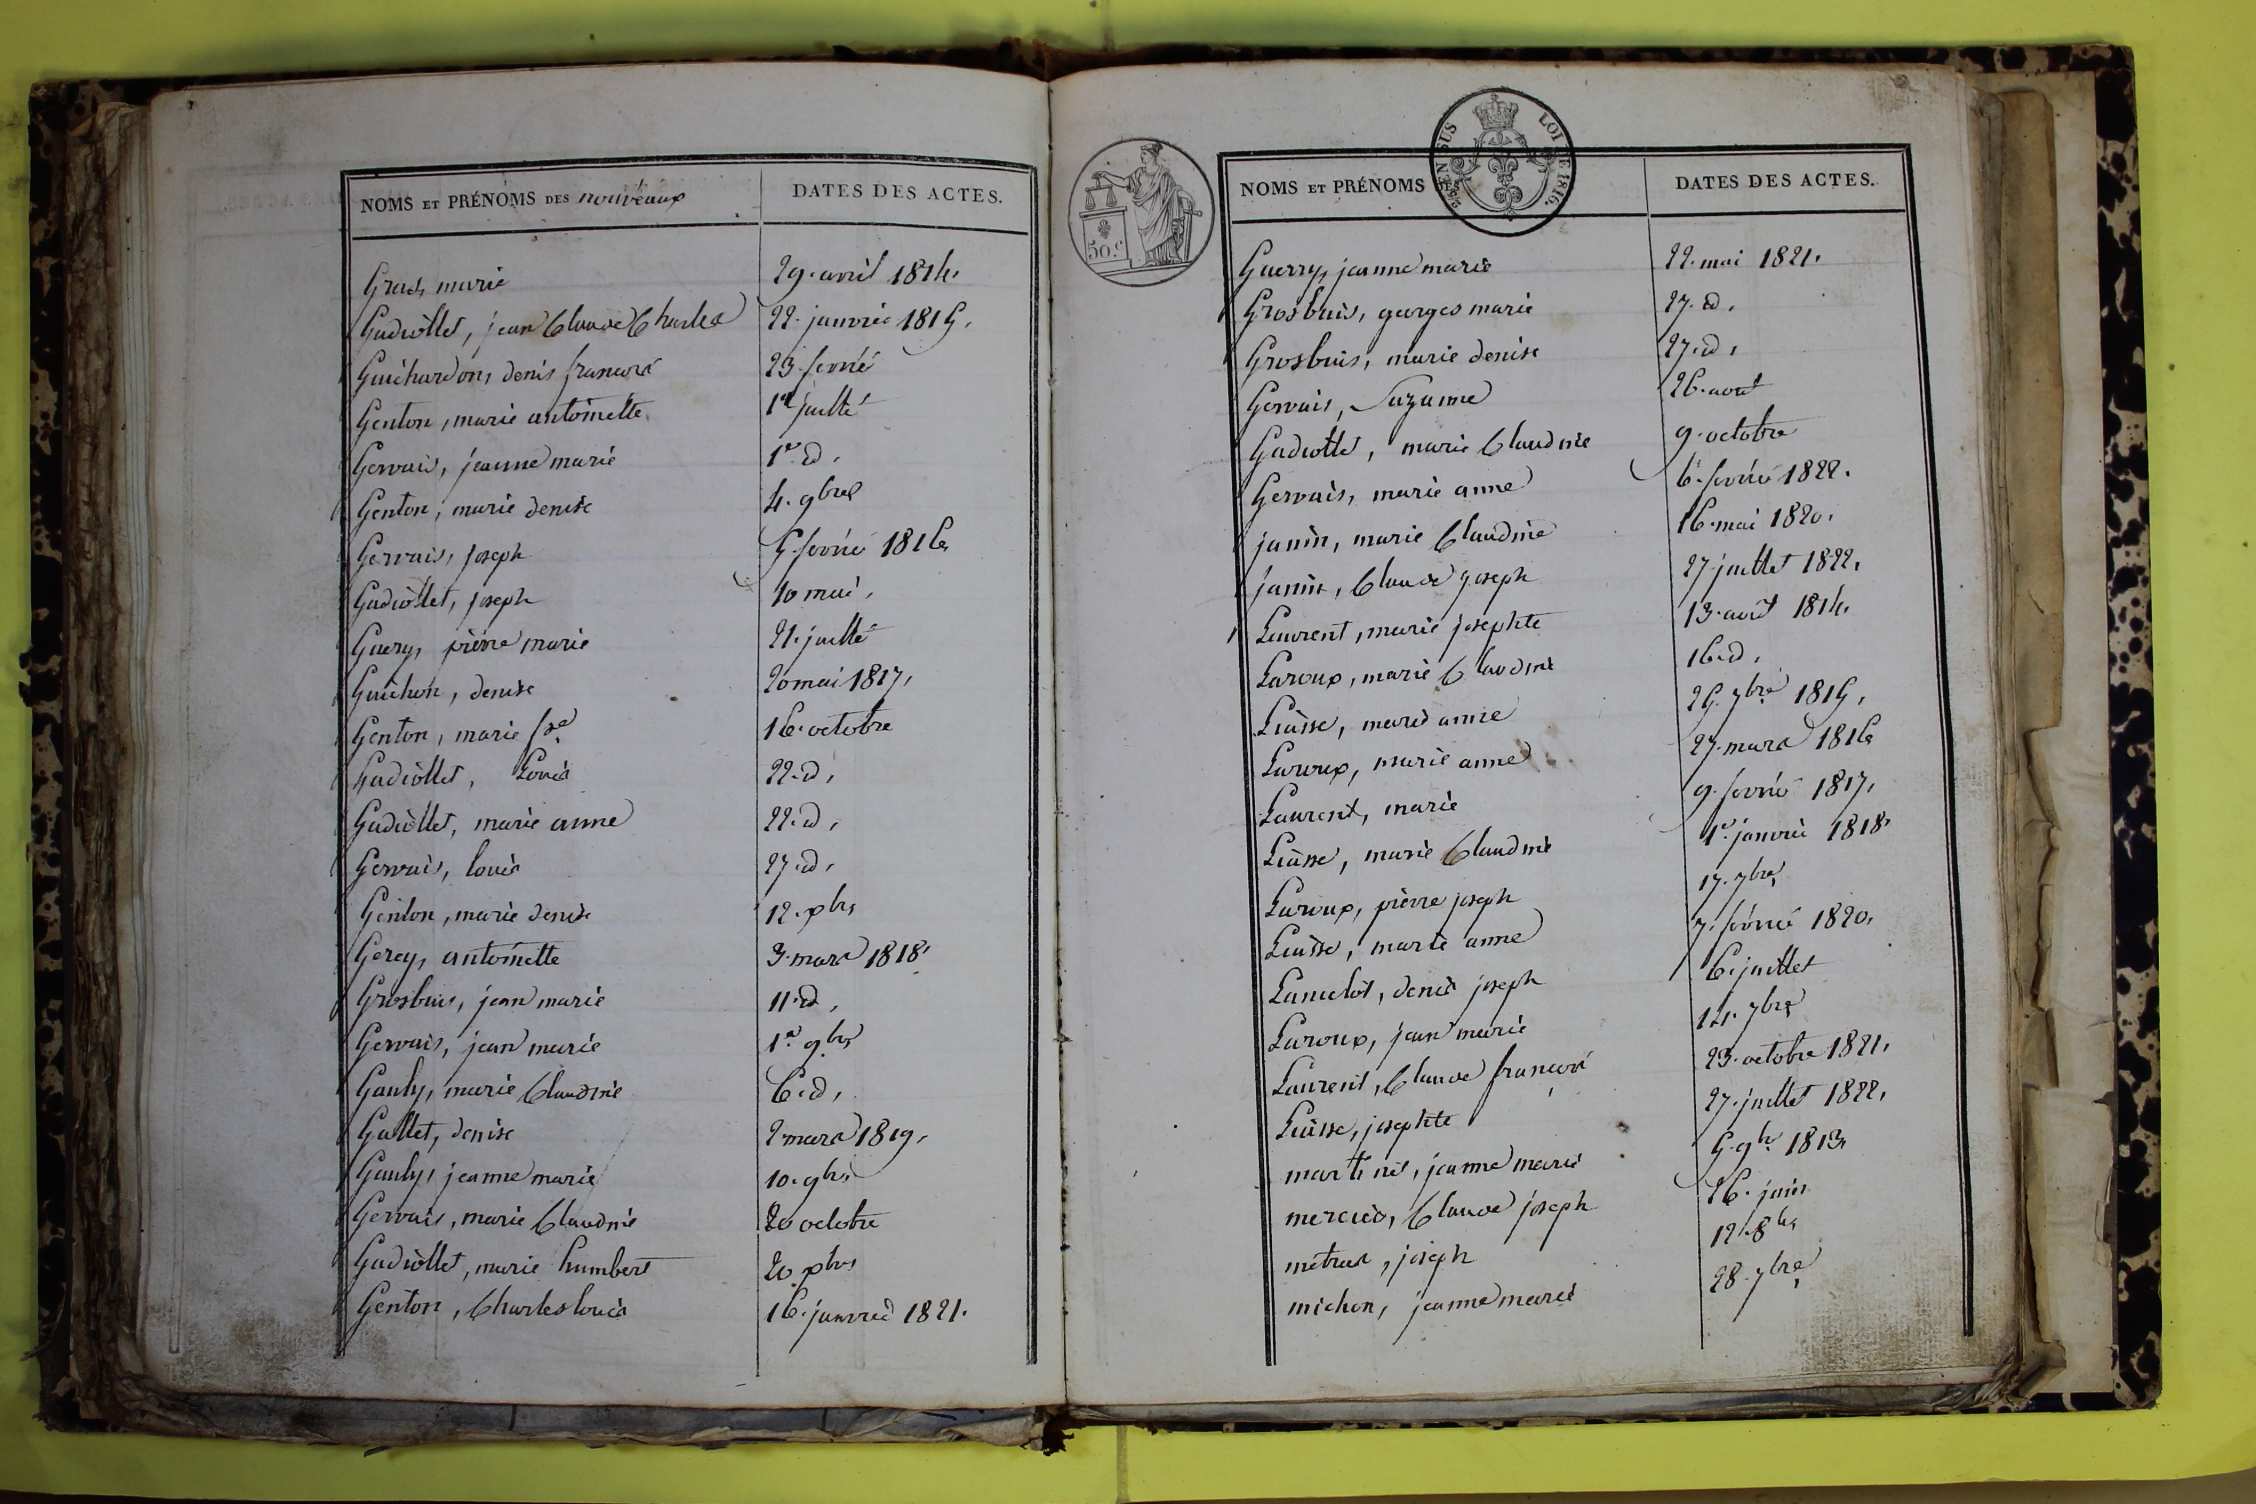 NOMS ET PRÉNOMS DES nouveaux DATES DES ACTES.
Gras, marie 29. avril 1814.
Gadiollet, jean Claude Charles 22. janvier 1815.
Guichardon, denis françois 23. fevrié
Genton, marie antoinette 1er juillé
Gervais, jeanne marie 1er id.
Genton, marie denise 4. gbre
Gervais, joseph 5. fevrié 1816.
Gadiollet, joseph 10 mai.
Guery, pierre marie 21. juillé
Guichon, denise 20 mai 1817.
Genton, marie fse 16. octobre
Gadiollet, Louis 22. id.
Gadiollet, marie anne 22. id.
Gervais, louis 27. id.
Genton, marie denise 12. xbre
Gerey, antoinette 3. mars 1818.
Grosbuis, jean marie 11. id.
Gervais, jean marie 1er 9bre
Gauly, marie Claudine 6. id.
Gallet, denise 2 mars 1819.
Gauly, jeanne marie 10. 9bre
Gervais, marie Claudine 20 octobre
Gadiollet, marie humbert 20 xbre
Genton, Charles louis 16. janvier 1821.
50.c
EN SUS LOI DE 1816.
NOMS ET PRÉNOMS DES DATES DES ACTES.
Guerry, jeanne marie 22. mai 1821.
Grosbuis, georges marie 27. id.
Grosbuis, marie denise 27. id.
Gervais, Suzanne 26. aout
Gadiollet, marie Claudine 9. octobre
Gervais, marie anne 6. fevrié 1822.
janin, marie Claudine 16. mai 1820.
janin, Claude joseph 27. juillet 1822.
Laurent, marie josephte 13. avril 1814.
Laroux, marie Claudine 16. id.
Liasse, marie anne 25. 7bre 1815.
Laroux, marie anne 27. mars 1816
Laurent, marie 9. fevrié 1817.
Liasse, marie Claudine 1er janvié 1818.
Laroux, pierre joseph 17. 7bre
Liasse, marie anne 7. fevrié 1820.
Lancelot, denis joseph 6. juillet
Laroux, jean marie 14. 7bre
Laurent, Claude françois 23. octobre 1821.
Liasse, josephte 27. juillet 1822.
martinet, jeanne marie 5. 9bre 1813.
mercier, Claude joseph 26. juin
métras, joseph 12. 8bre
michon, jeanne marie 28. 7bre